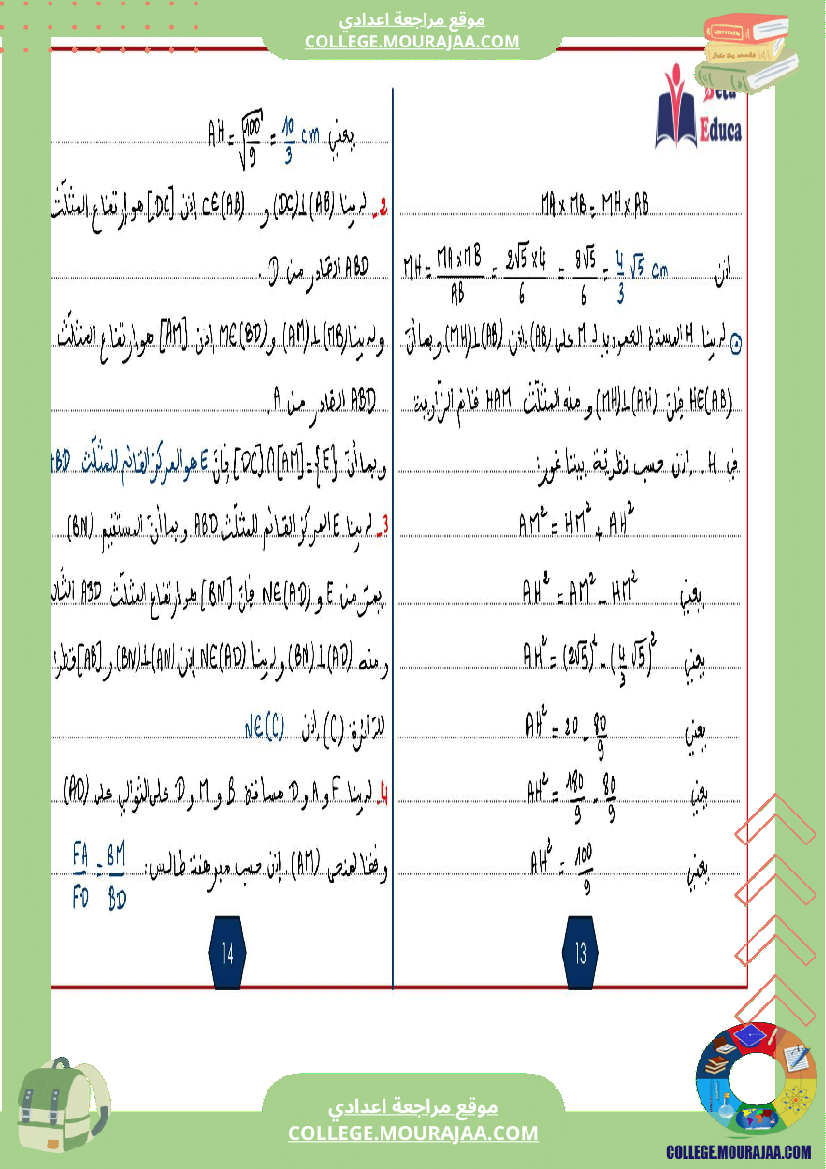 موقع مراجعة اعدادي
COLLEGE.MOURAJAA.COM
Beta
Educa
MA × MB = MH × AB
اذن MH = MA×MB / AB = 2√5 × 4 / 6 = 8√5 / 6 = 4/3 √5 cm
لدينا H المسقط العمودي لـ M على (AB) إذن (AB)⊥(MH) وبما أنّ
H∈(AB) فإنّ (AH)⊥(MH) ومنه المثلّث HAM قائم الزّاوية
في H. إذن حسب نظريّة بيتاغور:
AM² = HM² + AH²
يعني AH² = AM² - HM²
يعني AH² = (2√5)² - (4/3 √5)²
يعني AH² = 20 - 80/9
يعني AH² = 180/9 - 80/9
يعني AH² = 100/9
13
يعني AH = √100/9 = 10/3 cm
2- لدينا (AB)⊥(DC) و C∈(AB) إذن [DC] هو ارتفاع المثلّث
ABD الصّادر من D.
ولدينا (MB)⊥(AM) و M∈(BD) إذن [AM] هو ارتفاع المثلّث
ABD الصّادر من A.
وبما أنّ [DC]∩[AM]={E} فإنّ E هو المركز القائم للمثلّث ABD
3- لدينا E المركز القائم للمثلّث ABD وبما أنّ المستقيم (BN)
يمرّ من E و N∈(AD) فإنّ [BN] هو ارتفاع المثلّث ABD
ومنه (AD)⊥(BN) ولدينا N∈(AD) إذن (AN)⊥(BN) و [AB] قطر
للدّائرة (C) إذن N∈(C)
4- لدينا F و A و D مساقط B و M و D على التّوالي على (AD)
وفقا لمنحى (AM). إذن حسب مبرهنة طالس: FA/FD = BM/BD
14
موقع مراجعة اعدادي
COLLEGE.MOURAJAA.COM
COLLEGE.MOURAJAA.COM